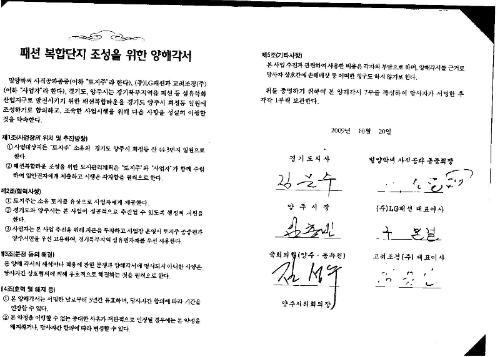 패션 복합단지 조성을 위한 양해각서
밀양박씨 사직공파종중(이하 "토지주"라 한다), (주)LG패션과 고려조경(주)
(이하 "사업자"라 한다), 경기도, 양주시는 경기북부지역을 패션 등 섬유특화
산업지구로 발전시키기 위한 패션복합타운을 경기도 양주시 회정동 일원에
조성하기로 합의하고, 조속한 사업시행을 위해 다음 사항을 성실히 이행할
것을 약속한다.
제1조(사업장의 위치 및 추진방향)
① 사업대상지는 "토지주" 소유의 경기도 양주시 회정동 산
한다.
② 패션복합타운 조성을 위한 도시관리계획은 "토지주"와 "사업자"가 함께 수립
하여 입안권자에게 제출하고 시행은 각자함을 원칙으로 한다.
제2조(협력사항)
① 토지주는 소유 토지를 유상으로 사업자에게 제공한다.
② 경기도와 양주시는 본 사업이 성공적으로 추진될 수 있도록 행정적 지원을
한다.
③ 사업자는 본 사업 추진을 위해 자본을 투자하고 사업장 운영시 토지주 종중원과
양주시민을 우선 고용하며, 경기북부지역 섬유원자재를 우선 사용한다.
제3조(분쟁 등의 해결)
본 양해각서의 해석이나 적용에 관한 분쟁과 양해각서에 명시되지 아니한 사항은
당사자간 상호협의에 의해 우호적으로 해결하는 것을 원칙으로 한다.
제4조(효력 및 해지 등)
① 본 양해각서는 서명한 날로부터 3년간 유효하며, 당사자간 합의에 따라 기간을
연장할 수 있다.
② 본 약정을 이행할 수 없는 중대한 사유가 객관적으로 인정될 경우에는 본 약정을
해지하거나, 당사자간 합의에 따라 변경할 수 있다.
제5조(기타사항)
본 사업 추진과 관련하여 사용한 비용은 각자의 부담으로 하며, 양해각서를 근거로
당사자 상호간에 손해배상 등 어떠한 청구도 하지 않기로 한다.
위를 증명하기 위하여 본 양해각서 7부를 작성하여 당사자가 서명한 후
각각 1부씩 보관한다.
2009년 10월 20일
경기도지사
밀양박씨 사직공파 종중회장
김문수
양주시장
(주)LG패션 대표이사
임충빈
구본걸
국회의원(양주·동두천)
고려조경(주) 대표이사
김성수
양주시의회의장